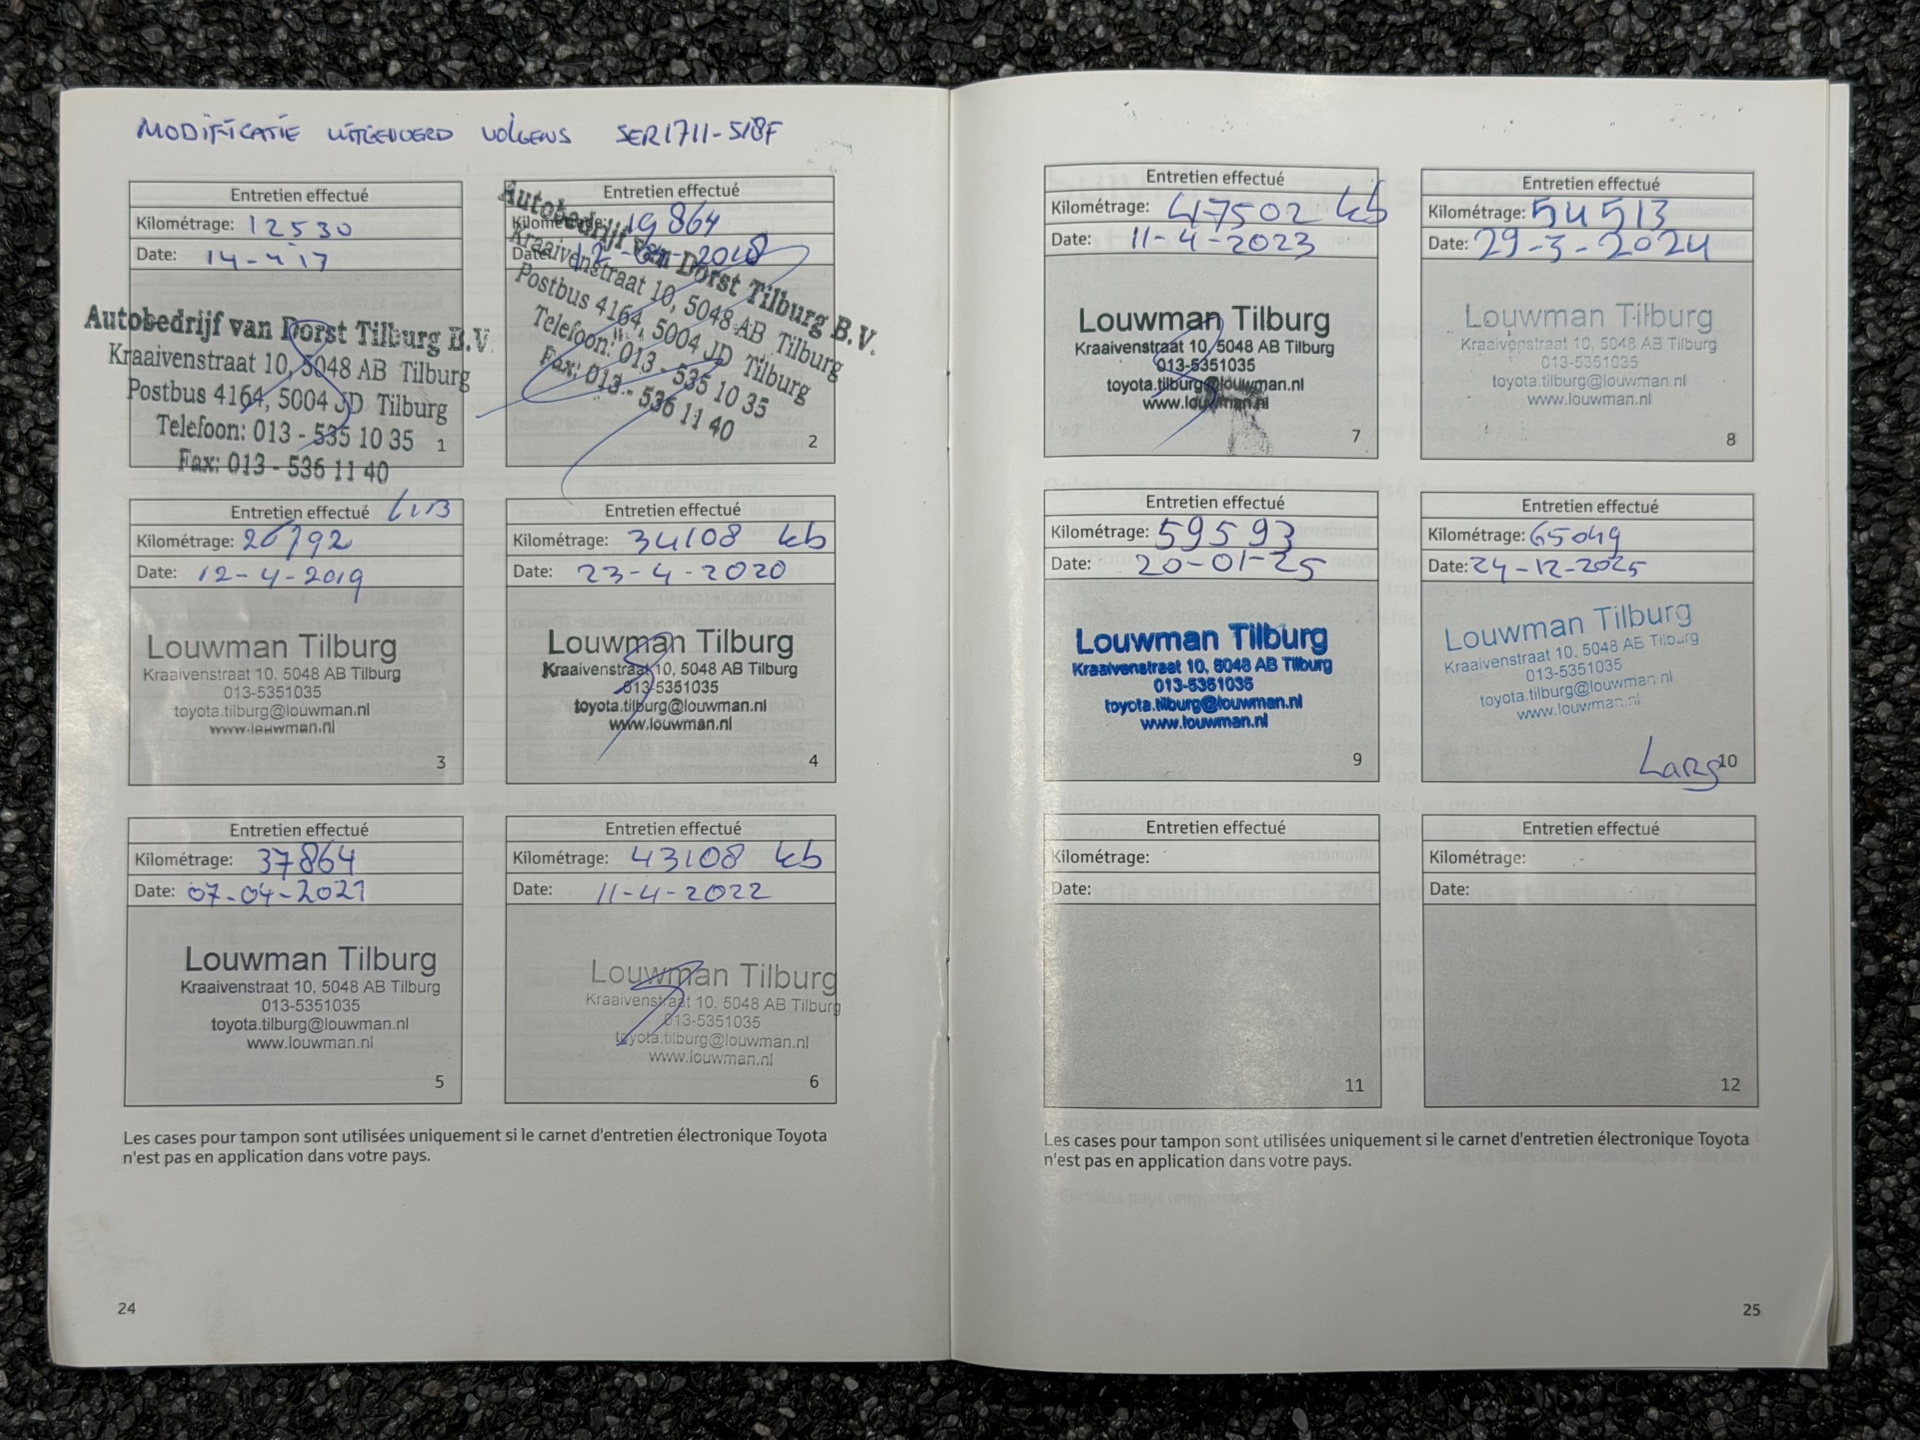 MODIFICATIE UITGEVOERD VOLGENS SER1711-518F
Entretien effectué
Kilométrage: 12530
Date: 14-4-17
Autobedrijf van Dorst Tilburg B.V.
Kraaivenstraat 10, 5048 AB Tilburg
Postbus 4164, 5004 JD Tilburg
Telefoon: 013 - 535 10 35
Fax: 013 - 536 11 40
1
Entretien effectué
Kilométrage: 19864
Date: 12-04-2018
Autobedrijf van Dorst Tilburg B.V.
Kraaivenstraat 10, 5048 AB Tilburg
Postbus 4164, 5004 JD Tilburg
Telefoon: 013 - 535 10 35
Fax: 013 - 536 11 40
2
Entretien effectué
Kilométrage: 26792
Date: 12-4-2019
Louwman Tilburg
Kraaivenstraat 10, 5048 AB Tilburg
013-5351035
toyota.tilburg@louwman.nl
www.louwman.nl
3
Entretien effectué
Kilométrage: 34108 kb
Date: 23-4-2020
Louwman Tilburg
Kraaivenstraat 10, 5048 AB Tilburg
013-5351035
toyota.tilburg@louwman.nl
www.louwman.nl
4
Entretien effectué
Kilométrage: 37864
Date: 07-04-2021
Louwman Tilburg
Kraaivenstraat 10, 5048 AB Tilburg
013-5351035
toyota.tilburg@louwman.nl
www.louwman.nl
5
Entretien effectué
Kilométrage: 43108 kb
Date: 11-4-2022
Louwman Tilburg
Kraaivenstraat 10, 5048 AB Tilburg
013-5351035
toyota.tilburg@louwman.nl
www.louwman.nl
6
Les cases pour tampon sont utilisées uniquement si le carnet d'entretien électronique Toyota
n'est pas en application dans votre pays.
24
Entretien effectué
Kilométrage: 47502 kb
Date: 11-4-2023
Louwman Tilburg
Kraaivenstraat 10, 5048 AB Tilburg
013-5351035
toyota.tilburg@louwman.nl
www.louwman.nl
7
Entretien effectué
Kilométrage: 54513
Date: 29-3-2024
Louwman Tilburg
Kraaivenstraat 10, 5048 AB Tilburg
013-5351035
toyota.tilburg@louwman.nl
www.louwman.nl
8
Entretien effectué
Kilométrage: 59593
Date: 20-01-25
Louwman Tilburg
Kraaivenstraat 10, 5048 AB Tilburg
013-5351035
toyota.tilburg@louwman.nl
www.louwman.nl
9
Entretien effectué
Kilométrage: 65049
Date: 24-12-2025
Louwman Tilburg
Kraaivenstraat 10, 5048 AB Tilburg
013-5351035
toyota.tilburg@louwman.nl
www.louwman.nl
Lars
10
Entretien effectué
Kilométrage:
Date:
11
Entretien effectué
Kilométrage:
Date:
12
Les cases pour tampon sont utilisées uniquement si le carnet d'entretien électronique Toyota
n'est pas en application dans votre pays.
25